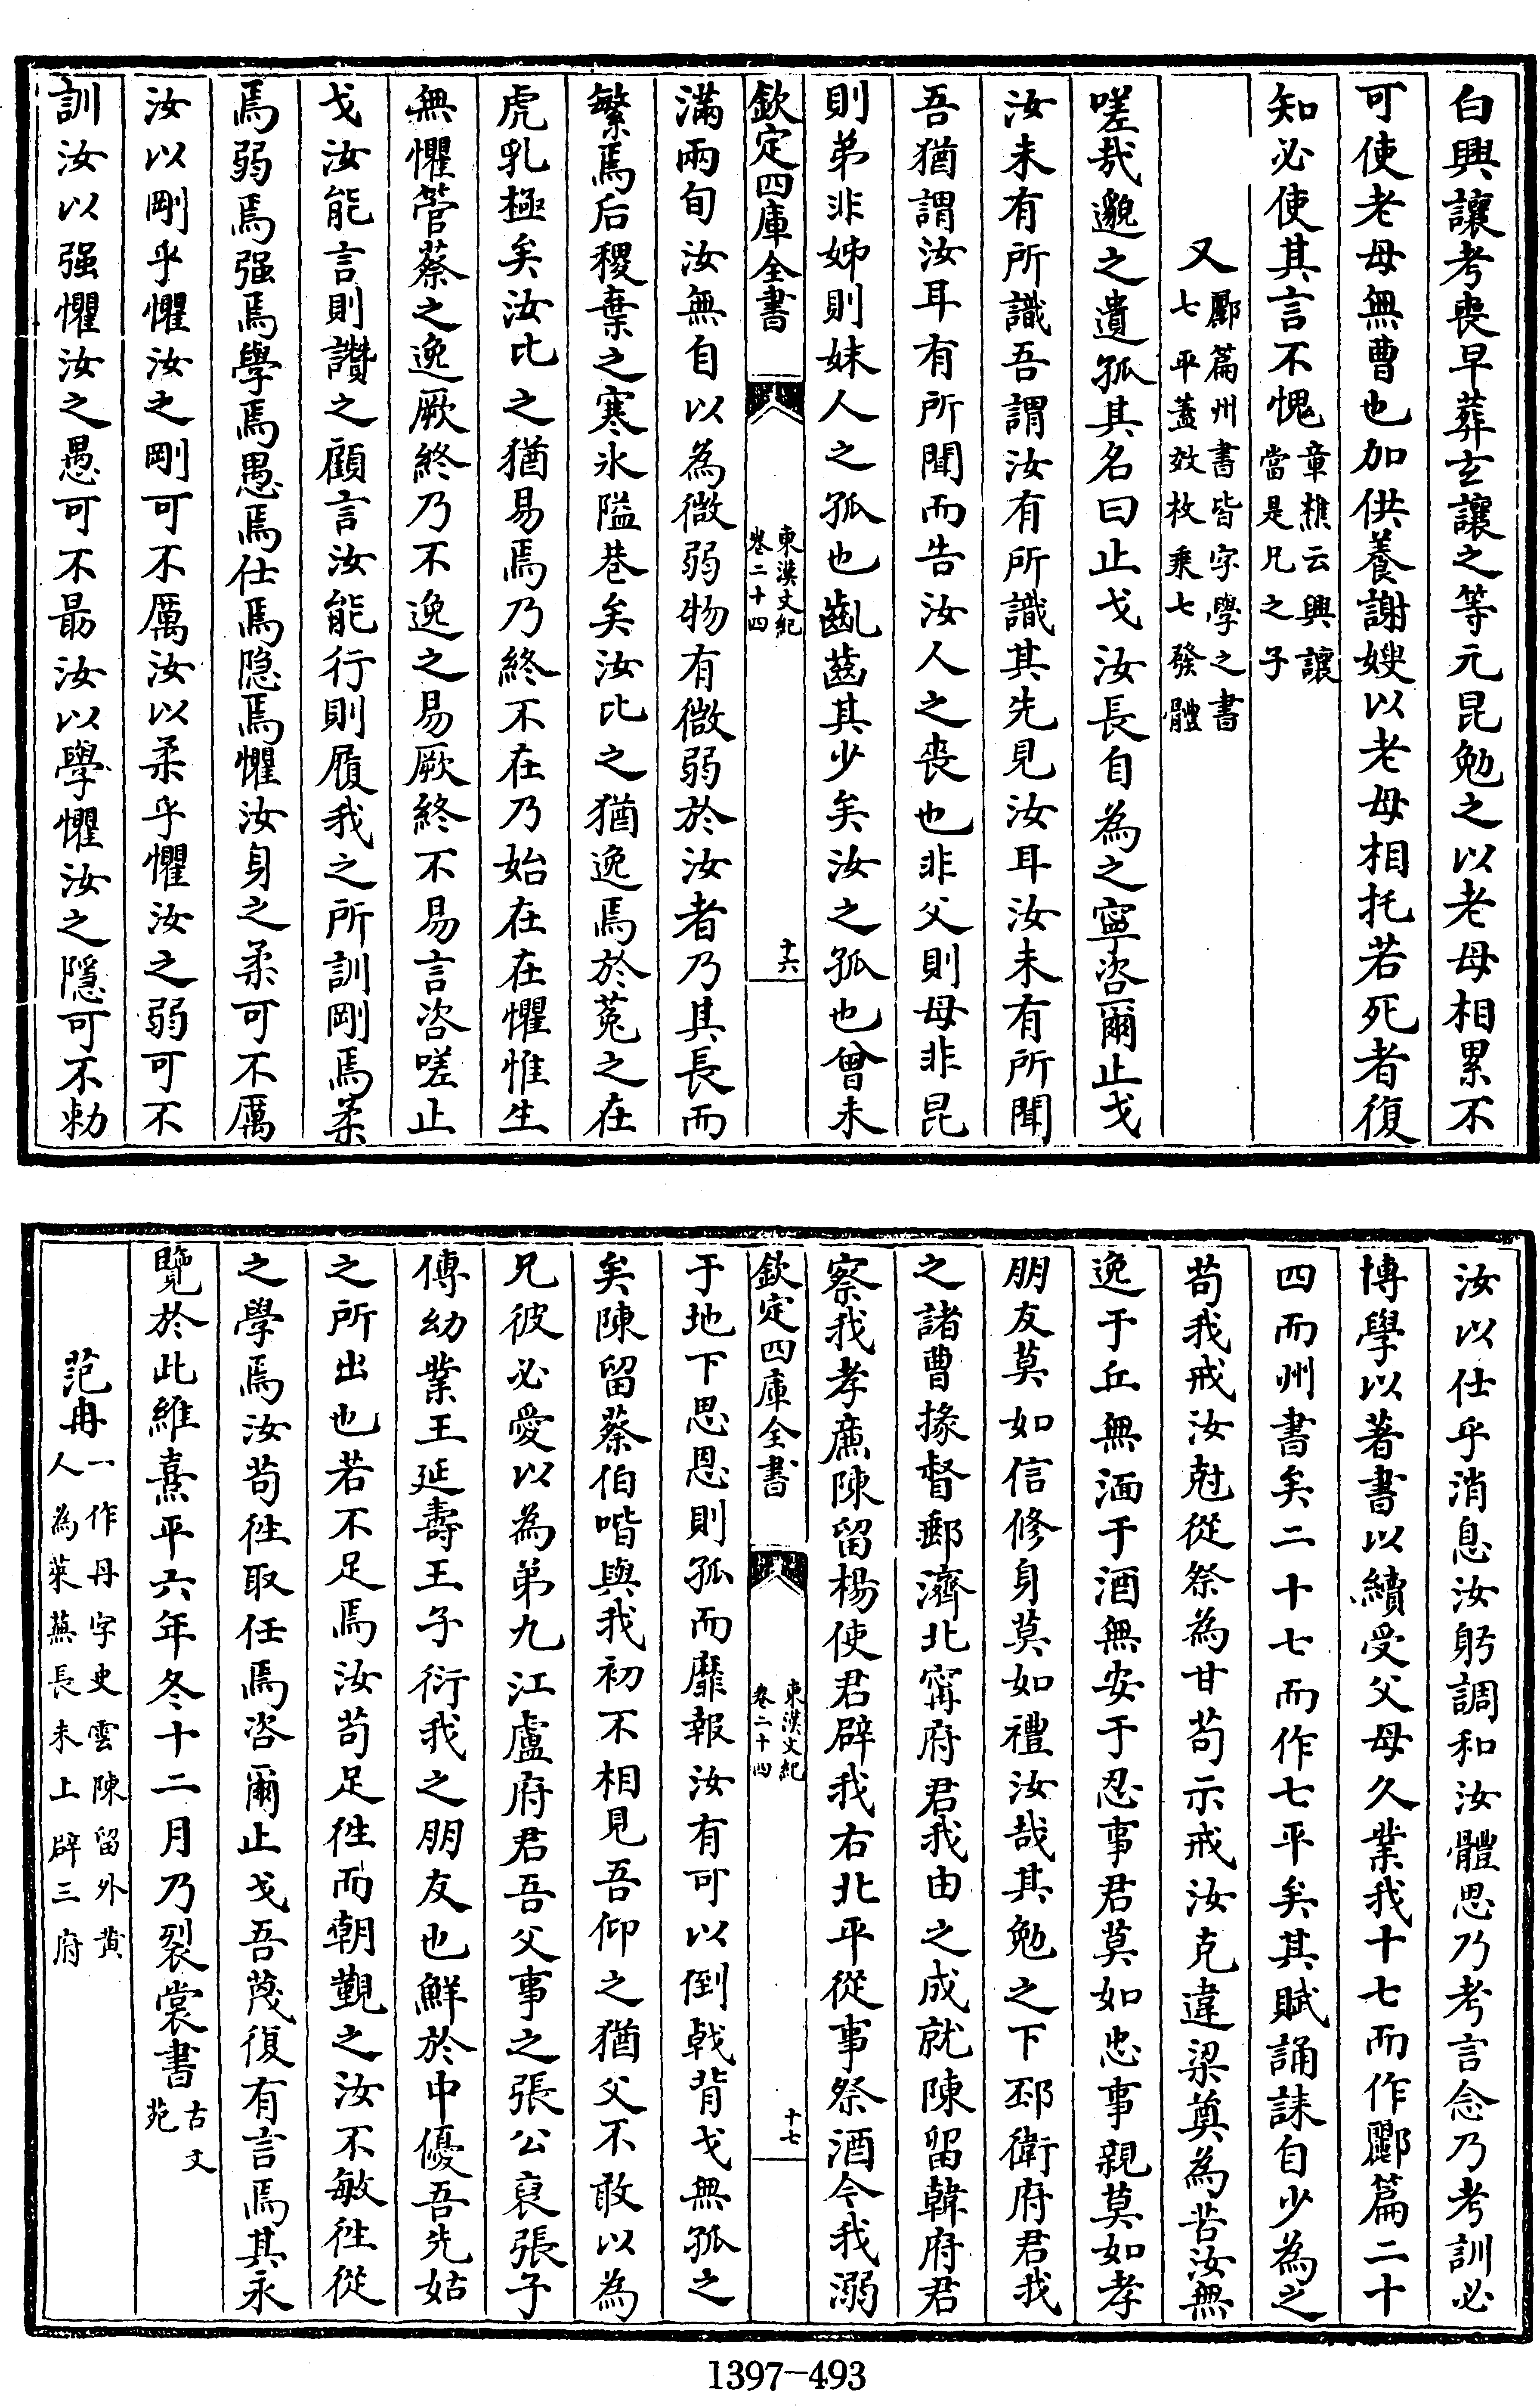 白興讓考喪早葬玄讓之等元昆勉之以老母相累不
可使老母無曹也加供養謝嫂以老母相托若死者復
知必使其言不愧章樵云興讓當是兄之子
又酈篇州書皆字學之書七平蓋效枚乗七發體
嗟㢤邈之遺孤其名曰止戈汝長自為之寧咨爾止戈
汝未有所識吾謂汝有所識其先見汝耳汝未有所聞
吾猶謂汝耳有所聞而告汝人之喪也非父則母非昆
則弟非姊則妹人之孤也齓齒其少矣汝之孤也曾未
欽定四庫全書 東漢文紀卷二十四 十六
滿兩旬汝無自以為微弱物有微弱於汝者乃其長而
繁焉后稷棄之寒氷隘巷矣汝比之猶逸焉於菟之在
虎乳極矣汝比之猶易焉乃終不在乃始在在懼惟生
無懼管蔡之逸厥終乃不逸之易厥終不易言咨嗟止
戈汝能言則讚之顧言汝能行則履我之所訓剛焉柔
焉弱焉强焉學焉愚焉仕焉隐焉懼汝身之柔可不厲
汝以剛乎懼汝之剛可不厲汝以柔乎懼汝之弱可不
訓汝以强懼汝之愚可不朂汝以學懼汝之隱可不勅
汝以仕乎消息汝躬調和汝體思乃考言念乃考訓必
博學以著書以續受父母久業我十七而作酈篇二十
四而州書矣二十七而作七平矣其賦誦誄自少為之
茍我戒汝尅從祭為甘茍示戒汝克違梁奠為苦汝無
逸于丘無湎于酒無安于忍事君莫如忠事親莫如孝
朋友莫如信修身莫如禮汝哉其勉之下邳衛府君我
之諸曹掾督郵濟北甯府君我由之成就陳留韓府君
察我孝廉陳留楊使君辟我右北平從事祭酒令我溺
欽定四庫全書 東漢文紀卷二十四 十七
于地下思恩則孤而靡報汝有可以倒戟背戈無孤之
矣陳留蔡伯喈與我初不相見吾仰之猶父不敢以為
兄彼必愛以為弟九江盧府君吾父事之張公裒張子
傅幼業王延壽王子衍我之朋友也鮮於中優吾先姑
之所出也若不足焉汝茍足徃而朝覲之汝不敏徃從
之學焉汝茍徃取任焉咨爾止戈吾蔑復有言焉其永
覽於此維熹平六年冬十二月乃裂裳書古文苑
范冉一作丹字史雲陳留外黄人為萊蕪長未上辟三府
1397-493